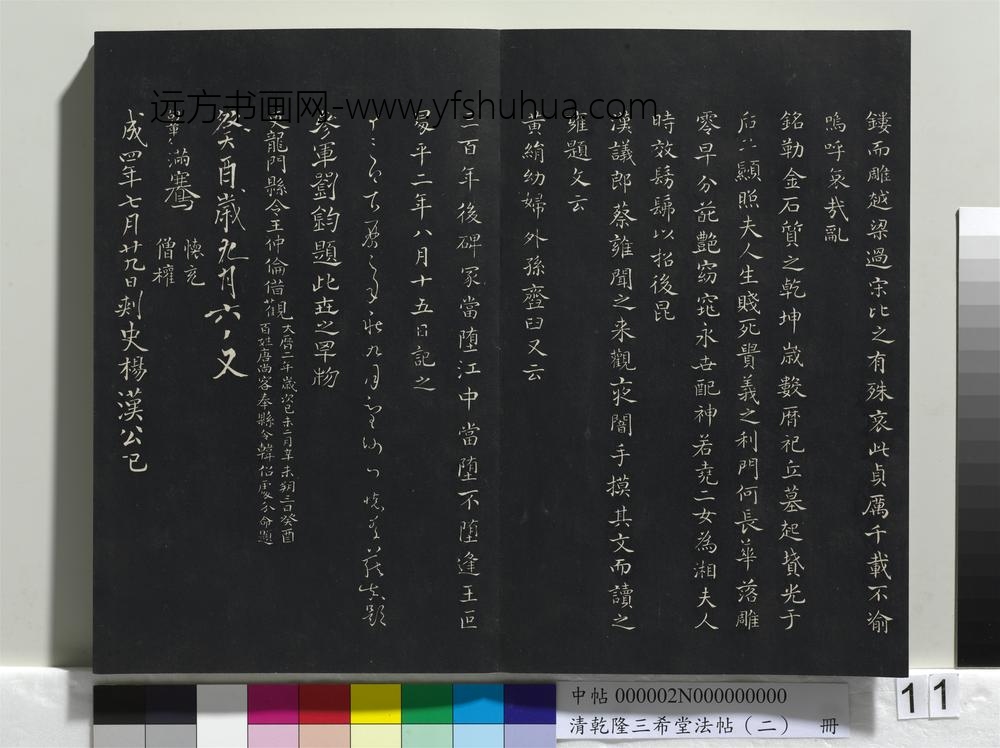 远方书画网-www.yfshuhua.com
鏤而雕越梁過宋比之有殊哀此貞厲千載不渝
嗚呼哀哉亂
銘勒金石質之乾坤歲數曆祀立墓起墳光于
后土顯照夫人生賤死貴義之利門何長華落雕
零早分葩艷窈窕永世配神若堯二女為湘夫人
時效髣髴以招後昆
漢議郎蔡雍聞之来觀夜闇手摸其文而讀之
雍題文云
黃絹幼婦外孫齏臼又云
三百年後碑冢當墮江中當墮不墮逢王叵
昇平二年八月十五日記之
九月
題
參軍劉鈞題此世之罕物
龍門縣令王仲倫借觀
大曆二年歲次己未二月辛未朔三日癸酉
百姓唐尚客奉縣令韓侶處分命題
癸酉歲九月六
滿騫
懷充
僧權
咸四年七月廿九日刺史楊漢公記
中帖 000002N000000000
清乾隆三希堂法帖（二） 冊
11